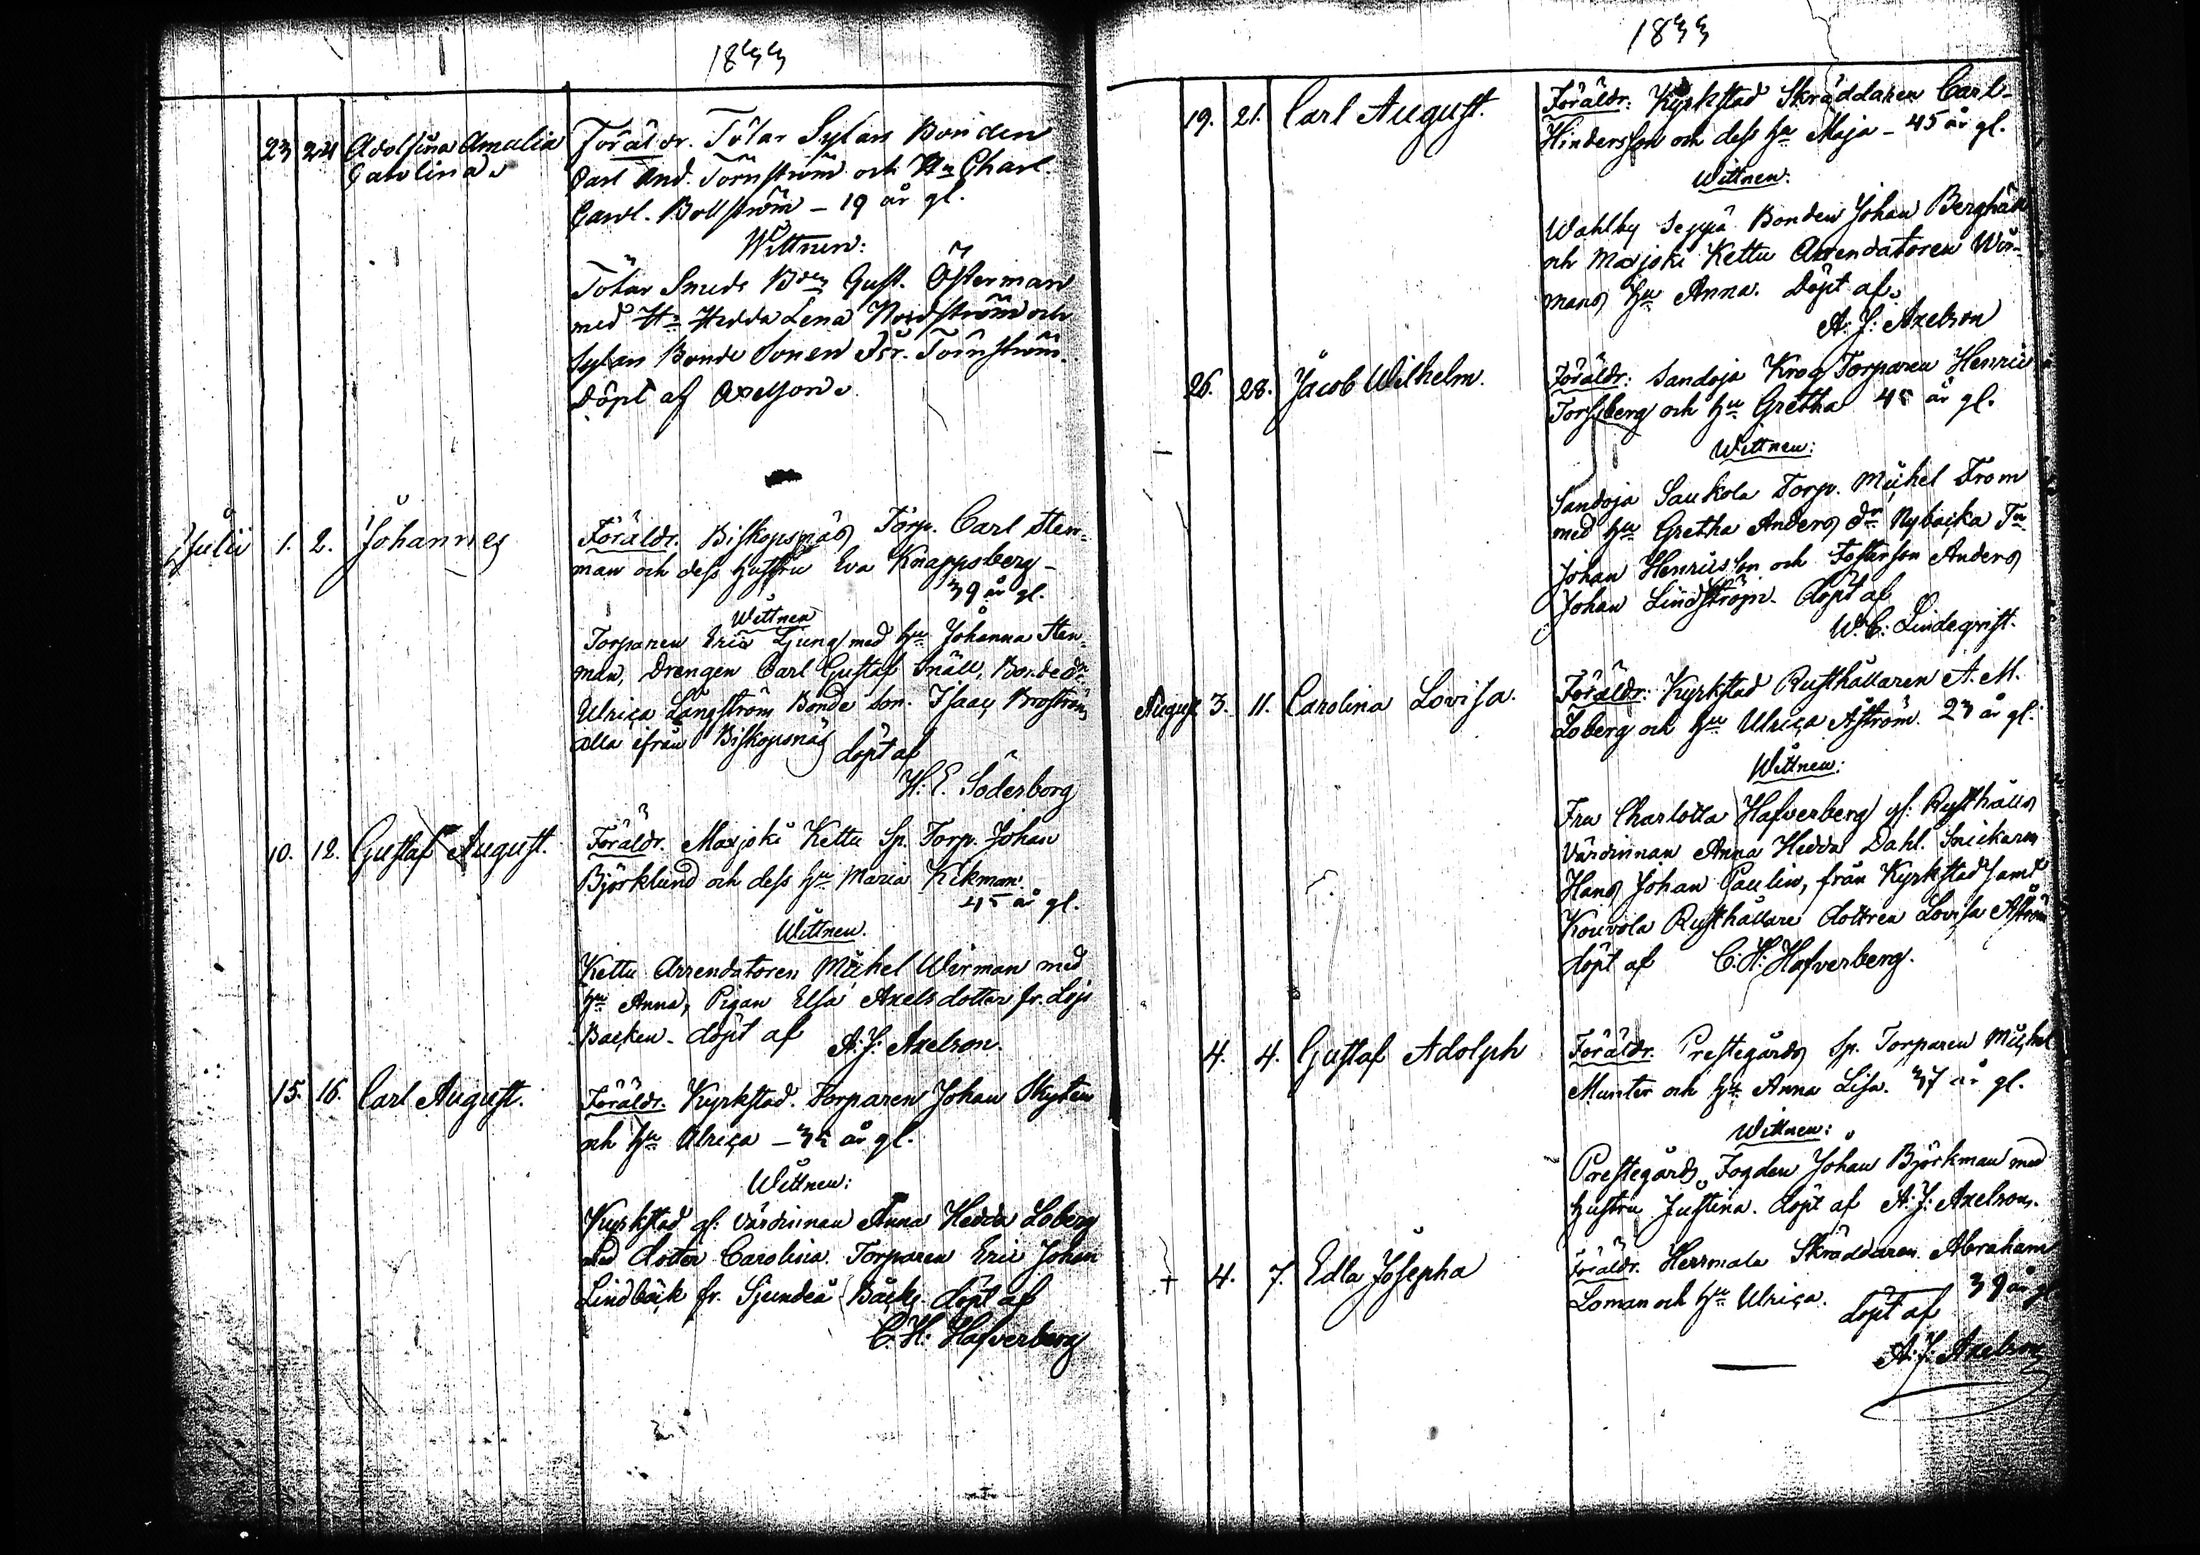 1833
23 24 Adolfina Amalia
Carolina.
Föräldr. Tötar Sylan Bonden
Carl And. Törnström och Hu Charl.
Carol. Bollström – 19 år gl.
Wittnen:
Tötar Smeds Bden Gust. Österman
med Hu Hedda Lena Nordström och
Sylan Bonde Sonen Törnström.
Döpt af Axelson.
Julii 1. 2. Johannes
Föräldr. Biskopsnäs Torp. Carl Sten-
man och dess hustru Eva Knappsberg –
39 år gl.
Wittnen
Torparen Eric Ljung med hu Johanna Sten-
man, Drengen Carl Gustaf Snäll, Bonde dr.
Ulrica Långström Bonde Son. Isaac Broström
alla ifrån Biskopsnäs döpt af
H. E. Söderborg
10. 12. Gustaf August.
Föräldr. Marjoki Kettu Sp. Torp. Johan
Björklund och dess hu Maria Ekman.
45 år gl.
Wittnen.
Kettu Arrendatoren Michel Wirman med
hu Anna, Pigan Elsa Axelsdotter fr. Lojo
Backen. döpt af A. J. Axelson.
15. 16. Carl August.
Föräldr. Kyrkstad. Torparen Johan Skytén
och hu Ulrica – år gl.
Wittnen:
Kyrkstad gl. värdinnan Anna Hedda Loberg
med doter Carolina. Torparen Eric Johan
Lindbäck fr. Sjundeå Bäcks döpt af
C. H. Hafverberg
1833
19. 21. Carl August.
Föräldr: Kyrkstad Skräddaren Carl
Hindersson och dess hu Maja – 45 år gl.
Wittnen:
Wahlby Seppä Bonden Johan Berghäll
och Marjoki Kettu Arrendatoren Wir-
mans hu Anna. Döpt af.
A. J. Axelson
26. 28. Jacob Wilhelm.
Föräldr: Sandoja Krog Torparen Henric
Torssberg och hu Gretha 45 år gl.
Wittnen:
Sandoja Saukola Torp. Michel From
med hu Gretha Anders dr Nybacka
Johan Henricsson och Fosterson Anders
Johan Lindström. döpt af
W. C. Lindeqvist.
August 3. 11. Carolina Lovisa.
Föräldr: Kyrkstad Rusthållaren A. M.
Loberg och hu Ulrica Åström. 23 år gl.
Wittnen:
Fru Charlotta Hafverberg gl. Rusthålls
värdinnan Anna Hedda Dahl. Snickaren
Hans Johan Paulin, från Kyrkstad samt
Kouvola Rusthållare dottren Lovisa Åström
döpt af C. H. Hafverberg.
4. 4. Gustaf Adolph
Föräldr. Prestegårds Sp. Torparen Michel
Munter och hu Anna Lisa. 37 år gl.
Wittnen:
Prestegårds Fogden Johan Björkman med
hustru Justina. döpt af A. J. Axelson.
+ 4. 7. Edla Josepha
Föräldr. Herrmala Skräddaren Abraham
Loman och hu Ulrica. 39 år gl
döpt af
A. J. Axelson